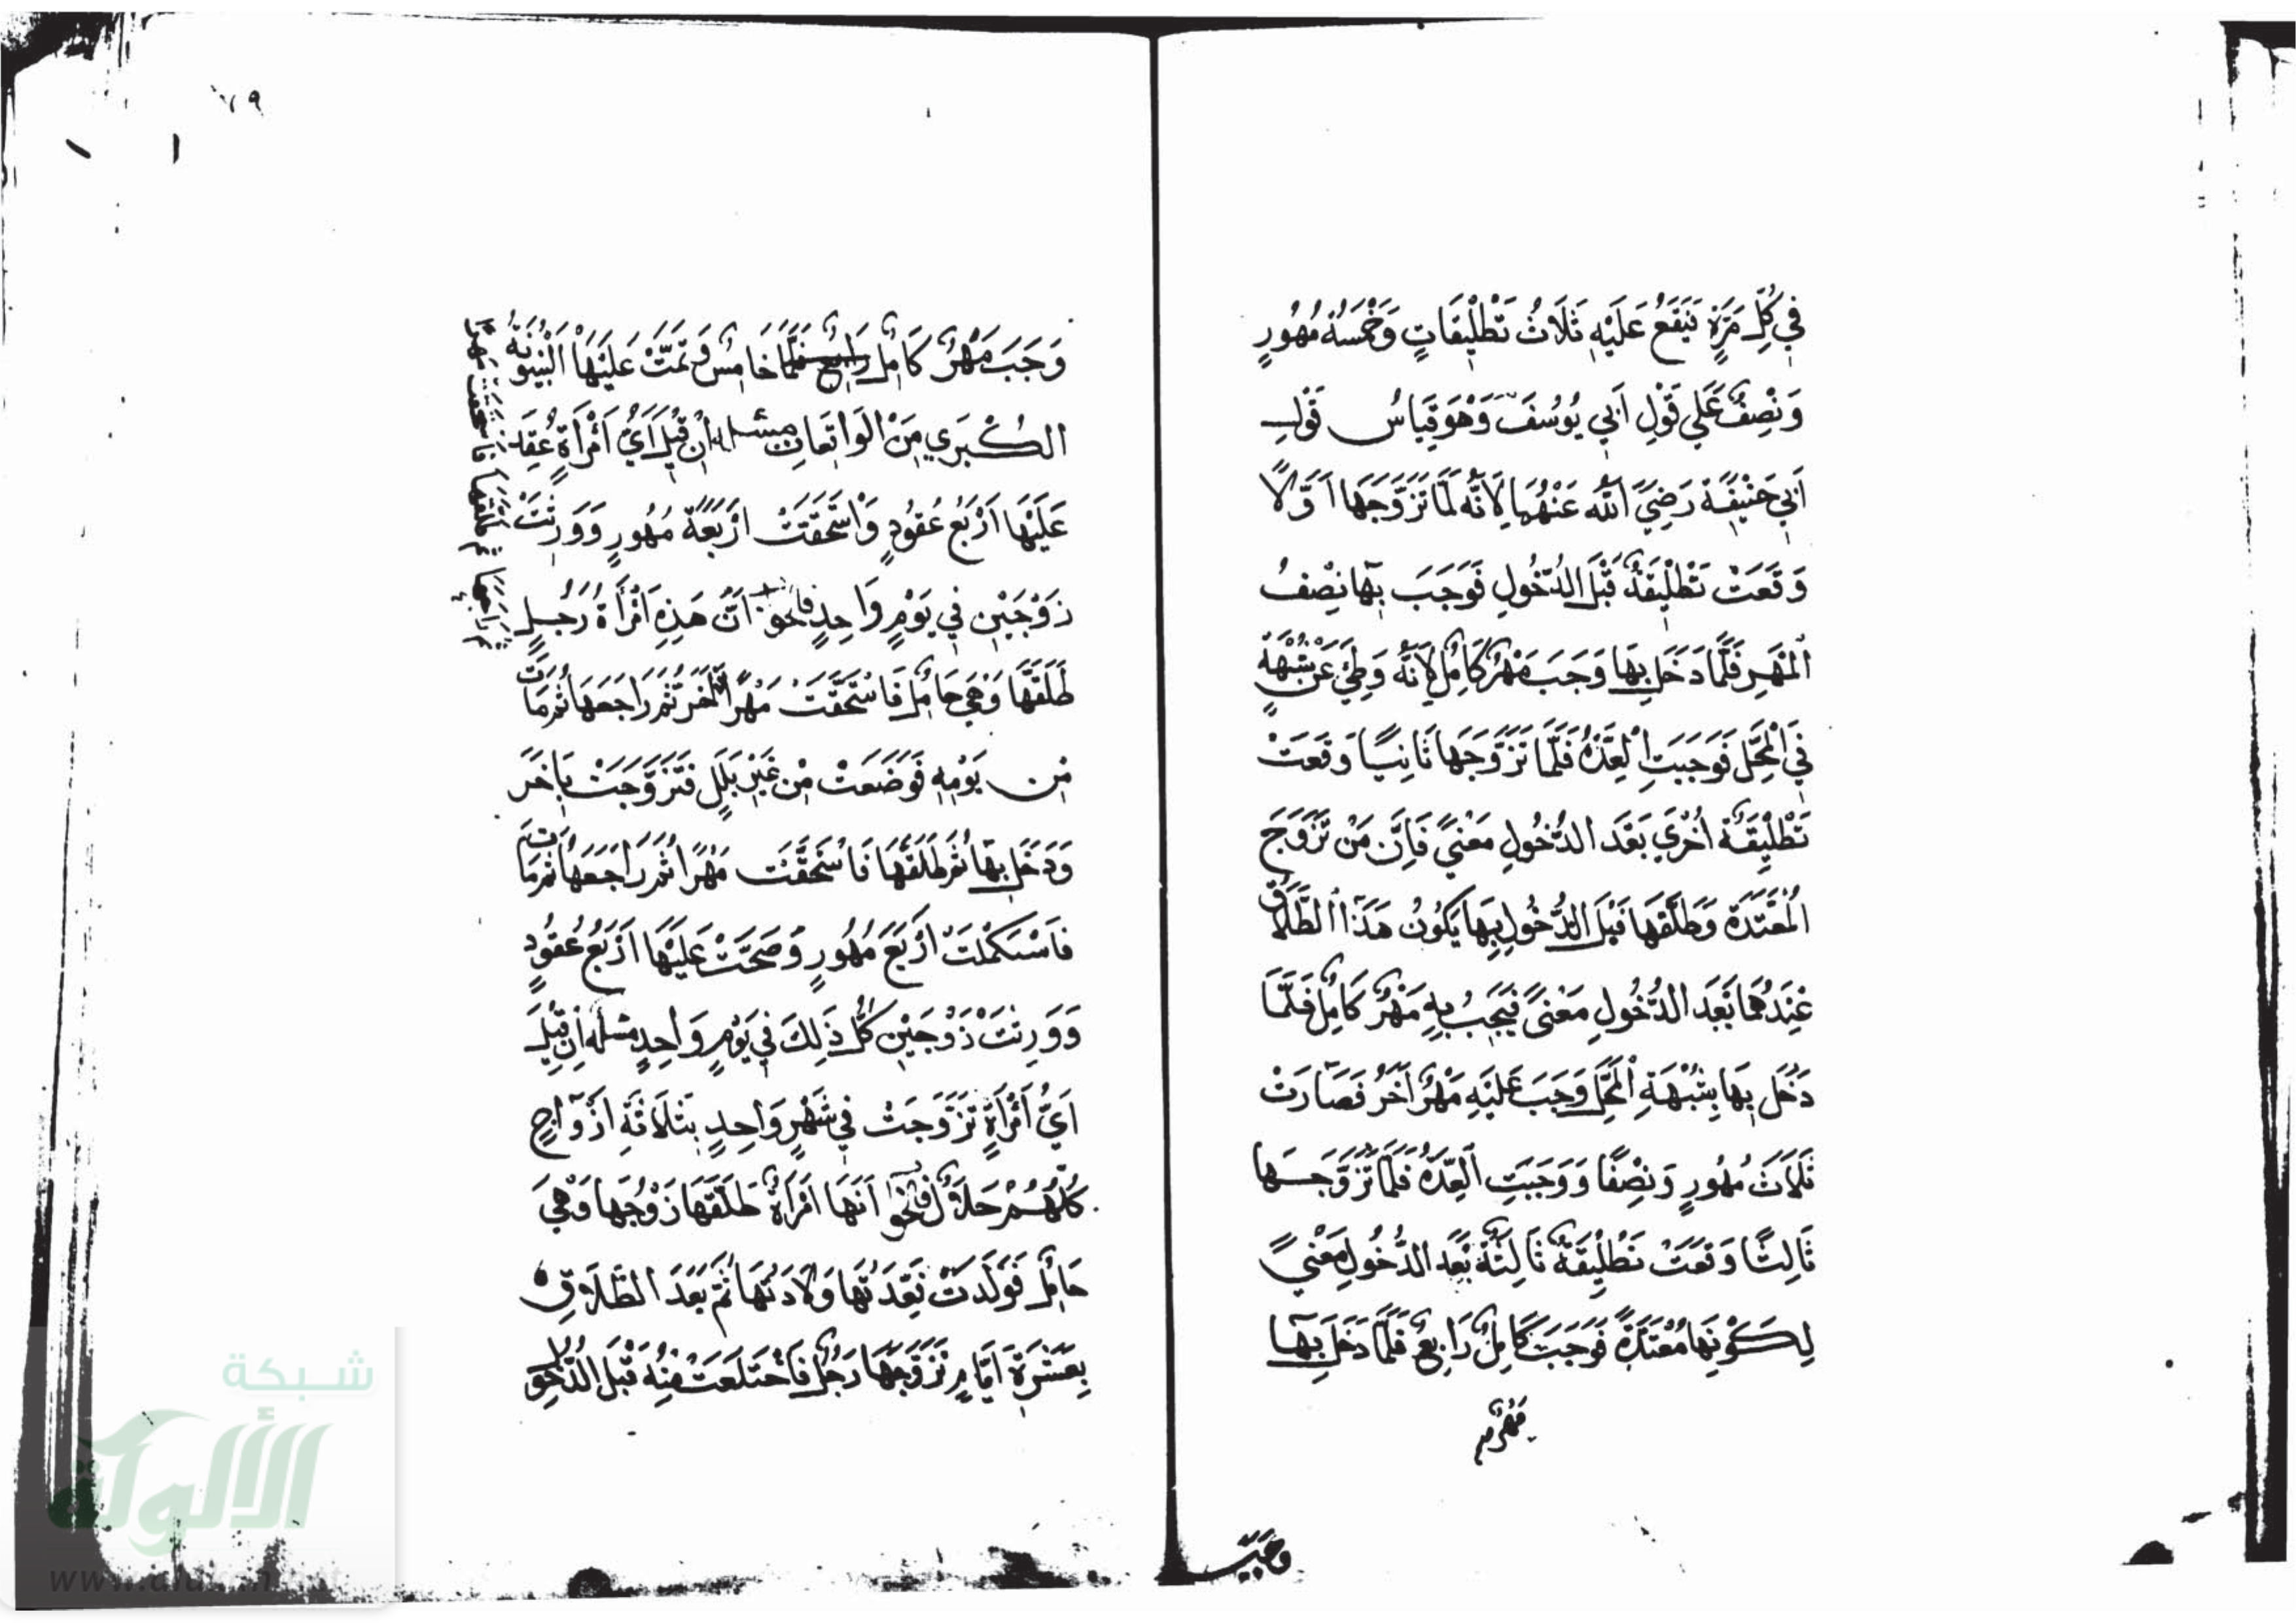 فِي كُلِّ مَرَّةٍ يَقَعُ عَلَيْهِ ثَلَاثُ تَطْلِيقَاتٍ وَخَمْسَةُ مُهُورٍ
وَنِصْفٌ عَلَي قَوْلِ اَبِي يُوسُفَ وَهْوَ قِيَاسُ قَوْلِ
اَبِي حَنِيفَةَ رَضِيَ اللّٰهُ عَنْهُمَا لِاَنَّهُ لَمَّا تَزَوَّجَهَا اَوَّلًا
وَقَعَتْ تَطْلِيقَةٌ قَبْلَ الدُّخُولِ فَوَجَبَ بِهَا نِصْفُ
الْمَهْرِ فَلَمَّا دَخَلَ بِهَا وَجَبَ مَهْرٌ كَامِلٌ لِاَنَّهُ وَطِئَ عَنْ شُبْهَةٍ
فِي الْمَحَلِّ فَوَجَبَتِ الْعِدَّةُ فَلَمَّا تَزَوَّجَهَا ثَانِيًا وَقَعَتْ
تَطْلِيقَةٌ اُخْرَي بَعْدَ الدُّخُولِ مَعْنًي فَاِنَّ مَنْ تَزَوَّجَ
الْمُعْتَدَّةَ وَطَلَّقَهَا قَبْلَ الدُّخُولِ بِهَا يَكُونُ هَذَا الطَّلَاقُ
عِنْدَهُمَا بَعْدَ الدُّخُولِ مَعْنًي فَيَجِبُ بِهِ مَهْرٌ كَامِلٌ فَلَمَّا
دَخَلَ بِهَا بِشُبْهَةِ الْمَحَلِّ وَجَبَ عَلَيْهِ مَهْرٌ اَخَرُ فَصَارَتْ
ثَلَاثَ مُهُورٍ وَنِصْفًا وَوَجَبَتِ الْعِدَّةُ فَلَمَّا تَزَوَّجَهَا
ثَالِثًا وَقَعَتْ تَطْلِيقَةٌ ثَالِثَةٌ بَعْدَ الدُّخُولِ مَعْنًي
لِكَوْنِهَا مُعْتَدَّةً فَوَجَبَ كَامِلٌ رَابِعٌ فَلَمَّا دَخَلَ بِهَا
مَهْرٌ
وجبَ
٧٩
وَجَبَ مَهْرٌ كَامِلٌ رَابِعٌ فَلَمَّا خَامِسٌ وَتَمَّتْ عَلَيْهَا الْبَيْنُونَةُ
الْكُبْرَي مِنَ الْوَاقِعَاتِ مسئلة اِنْ قِيلَ اَيُّ امْرَأَةٍ عُقِدَ
عَلَيْهَا اَرْبَعُ عُقُودٍ وَاسْتَحَقَّتْ اَرْبَعَةَ مُهُورٍ وَوَرِثَتْ
زَوْجَيْنِ فِي يَوْمٍ وَاحِدٍ فالجواب اَنَّ هَذِهِ امْرَأَةُ رَجُلٍ
طَلَّقَهَا وَهِيَ حَامِلٌ فَاسْتَحَقَّتْ مَهْرًا ثُمَّ رَاجَعَهَا ثُمَّ مَاتَ
مِن يَوْمِهِ فَوَضَعَتْ مِنْ غَيْرِ بَلَلٍ فَتَزَوَّجَتْ بِاَخَرَ
وَدَخَلَ بِهَا ثُمَّ طَلَّقَهَا فَاسْتَحَقَّتْ مَهْرًا ثُمَّ رَاجَعَهَا ثُمَّ مَاتَ
فَاسْتَكْمَلَتْ اَرْبَعَ مُهُورٍ وَصَحَّتْ عَلَيْهَا اَرْبَعُ عُقُودٍ
وَوَرِثَتْ زَوْجَيْنِ كُلُّ ذَلِكَ فِي يَوْمٍ وَاحِدٍ مسئلة اِنْ قِيلَ
اَيُّ امْرَأَةٍ تَزَوَّجَتْ فِي شَهْرٍ وَاحِدٍ بِثَلَاثَةِ اَزْوَاجٍ
كُلُّهُمْ حَلَالٌ فالجواب اَنَّهَا امْرَأَةٌ طَلَّقَهَا زَوْجُهَا وَهِيَ
حَامِلٌ فَوَلَدَتْ فَعِدَّتُهَا وِلَادَتُهَا ثُمَّ بَعْدَ الطَّلَاقِ
بِعَشَرَةِ اَيَّامٍ تَزَوَّجَهَا رَجُلٌ فَاخْتَلَعَتْ مِنْهُ قَبْلَ الدُّخُولِ
شبكة
الألوكة
www.alukah.net